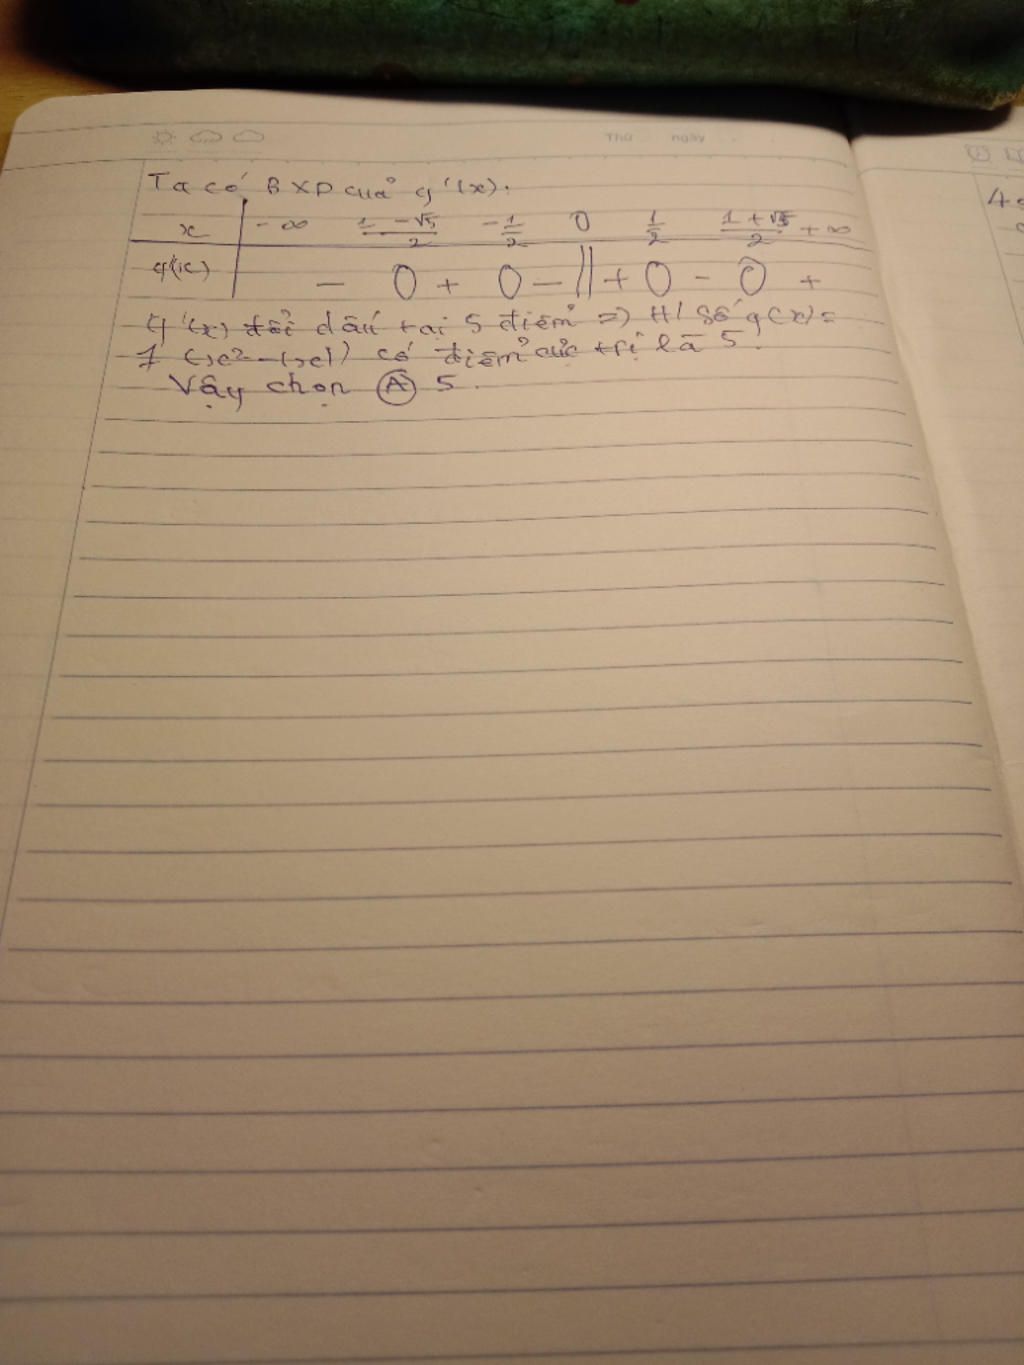 Thứ ngày
Ta có BXD của g'(x).
x -∞ 1-√5/2 -1/2 0 1/2 1+√5/2 +∞
g'(x) - 0 + 0 - || + 0 - 0 +
g'(x) đổi dấu tại 5 điểm => H/ số g(x) =
f(x²-|x|) có điểm cực trị là 5.
Vậy chọn Ⓐ 5.
4